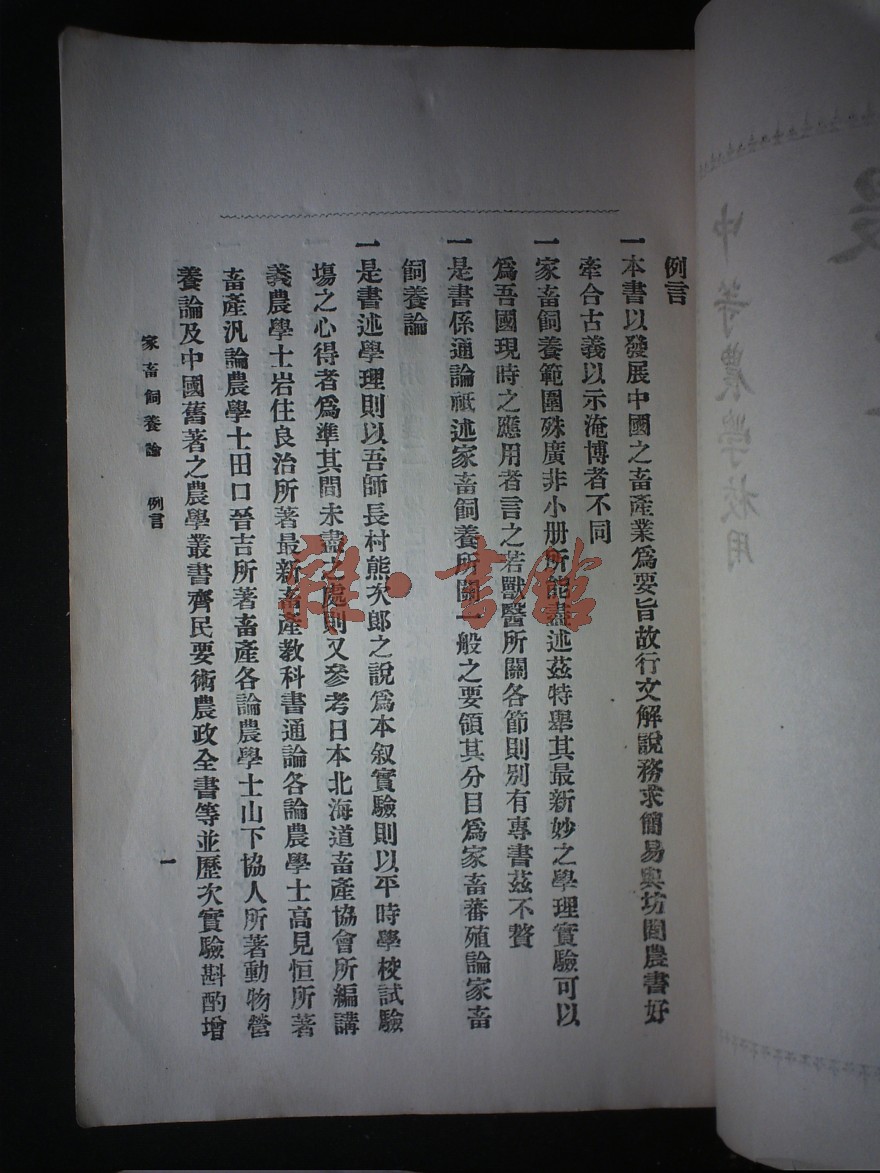 例言
一本書以發展中國之畜產業爲要旨故行文解說務求簡易與坊間農書好
牽合古義以示淹博者不同
一家畜飼養範圍殊廣非小册所能盡述茲特舉其最新妙之學理實驗可以
爲吾國現時之應用者言之若獸醫所關各節則別有專書茲不贅
一是書係通論祇述家畜飼養所關一般之要領其分目爲家畜蕃殖論家畜
飼養論
一是書述學理則以吾師長村熊次郎之說爲本叙實驗則以平時學校試驗
塲之心得者爲準其間未盡之處則又參考日本北海道畜產協會所編講
義農學士岩住良治所著最新畜產教科書通論各論農學士高見恒所著
畜產汎論農學士田口晉吉所著畜產各論農學士山下協人所著動物營
養論及中國舊著之農學叢書齊民要術農政全書等並歷次實驗斟酌增
家畜飼養論 例言
一
中等農學校用
雜·書館